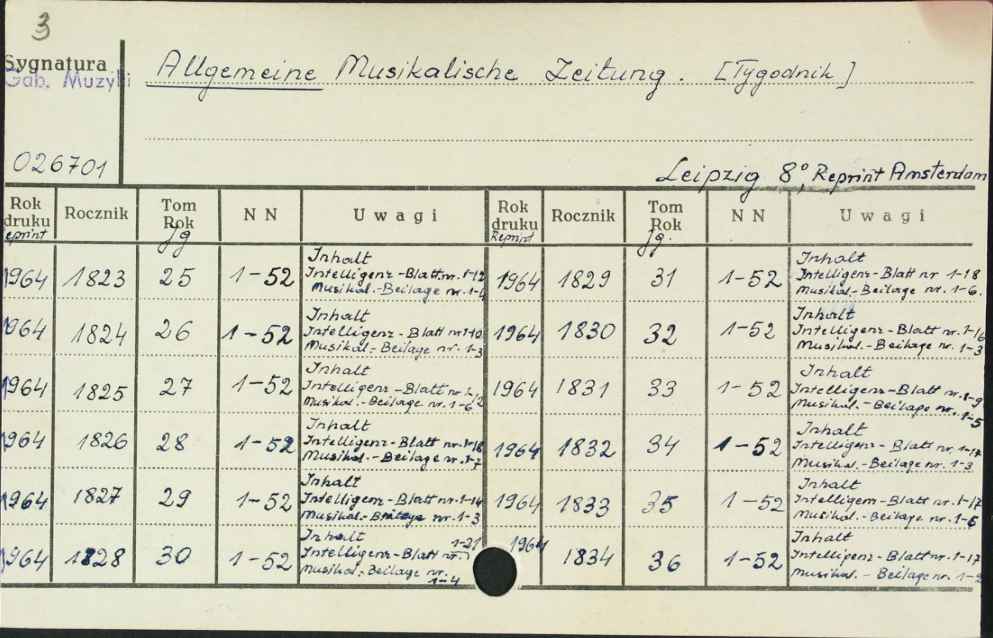 3
Sygnatura
Gab. Muzyki
Allgemeine Musikalische Zeitung. [Tygodnik]
026701
Leipzig 8°, Reprint Amsterdam
Rok druku eprint Rocznik Tom Rok Jg N N Uwagi Rok druku Reprint Rocznik Tom Rok Jg. N N Uwagi
1964 1823 25 1-52 Inhalt
Intelligenz-Blatt nr. 1-12
Musikal.-Beilage nr. 1-4
1964 1829 31 1-52 Inhalt
Intelligenz-Blatt nr 1-18
Musikal.-Beilage nr. 1-6.
1964 1824 26 1-52 Inhalt
Intelligenz-Blatt nr 1-10
Musikal.-Beilage nr. 1-3
1964 1830 32 1-52 Inhalt
Intelligenz-Blatt nr. 1-16
Musikal.-Beilage nr. 1-3
1964 1825 27 1-52 Inhalt
Intelligenz-Blatt nr.
Musikal.-Beilage nr. 1-6
1964 1831 33 1-52 Inhalt
Intelligenz-Blatt nr. 1-9
Musikal.-Beilage nr. 1-5
1964 1826 28 1-52 Inhalt
Intelligenz-Blatt nr. 1-18
Musikal.-Beilage nr. 1-7
1964 1832 34 1-52 Inhalt
Intelligenz-Blatt nr.
Musikal.-Beilage nr. 1-3
1964 1827 29 1-52 Inhalt
Intelligenz-Blatt nr. 1-14
Musikal.-Beilage nr. 1-3
1964 1833 35 1-52 Inhalt
Intelligenz-Blatt nr. 1-17
Musikal.-Beilage nr. 1-6
1964 1828 30 1-52 Inhalt 1-21
Intelligenz-Blatt nr.
Musikal.-Beilage nr. 1-4
1964 1834 36 1-52 Inhalt
Intelligenz-Blatt nr. 1-17
Musikal.-Beilage nr.